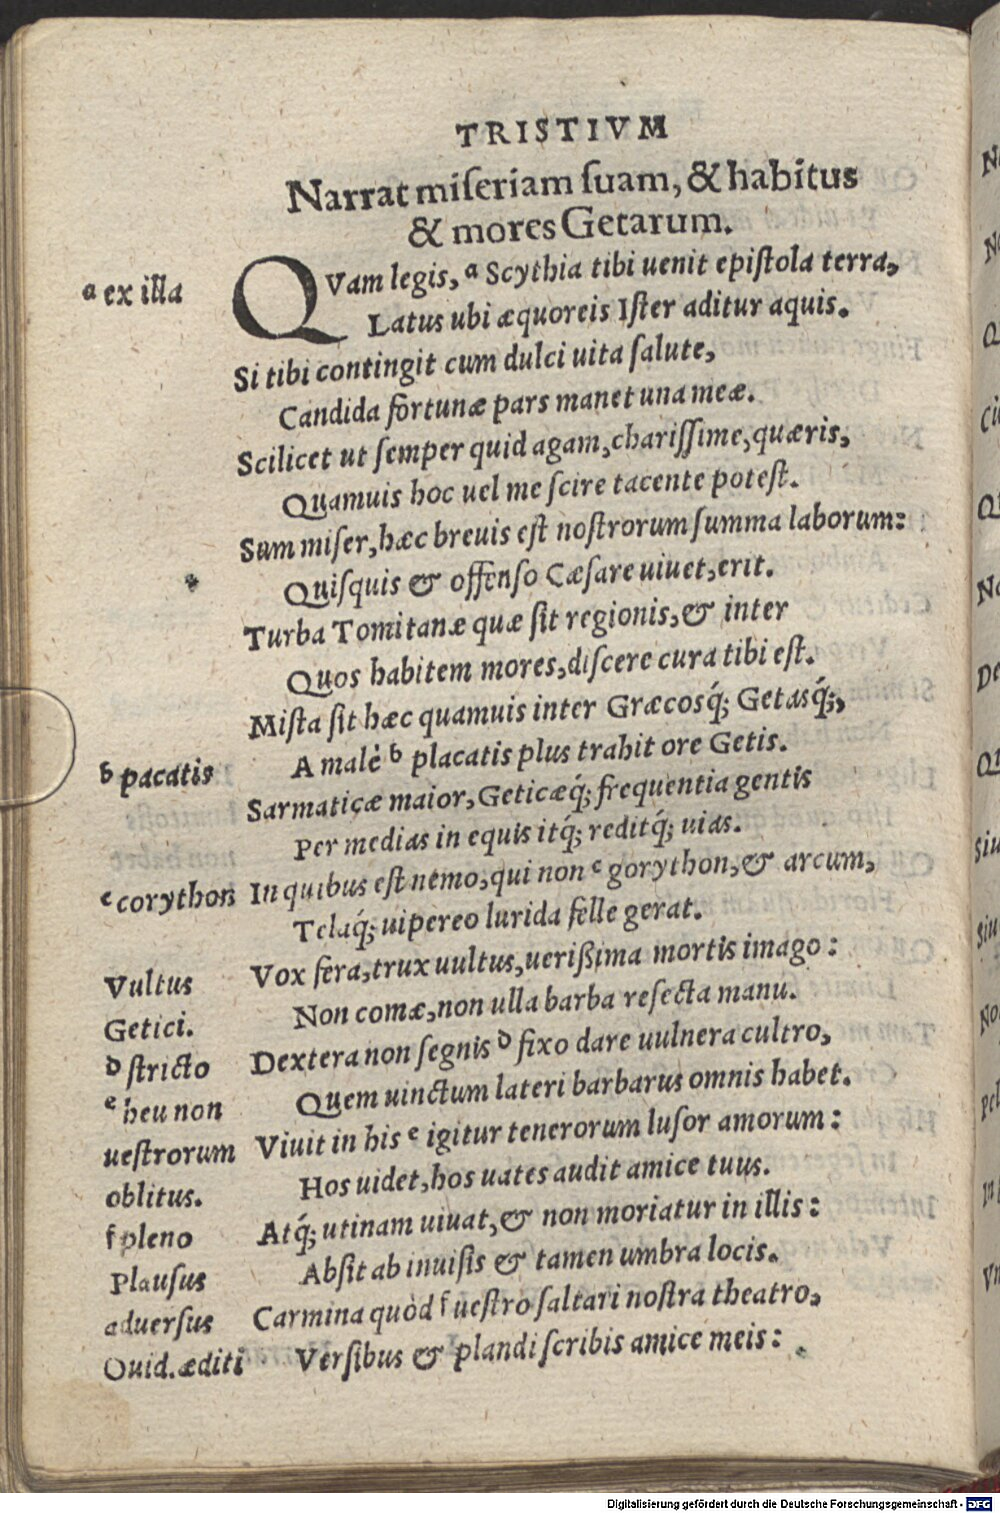 TRISTIVM
Narrat miſeriam ſuam, & habitus
& mores Getarum.
a ex illa
QVam legis, a Scythia tibi uenit epiſtola terra,
Latus ubi æquoreis Iſter aditur aquis.
Si tibi contingit cum dulci uita ſalute,
Candida fortunæ pars manet una meæ.
Scilicet ut ſemper quid agam, chariſſime, quæris,
Quamuis hoc uel me ſcire tacente poteſt.
Sum miſer, hæc breuis eſt noſtrorum ſumma laborum:
Quiſquis & offenſo Cæſare uiuet, erit.
Turba Tomitanæ quæ ſit regionis, & inter
Quos habitem mores, diſcere cura tibi eſt.
Miſta ſit hæc quamuis inter Græcosq́; Getasq́;,
b pacatis
A malè b placatis plus trahit ore Getis.
Sarmaticæ maior, Geticæq́; frequentia gentis
Per medias in equis itq́; reditq́; uias.
c corython
In quibus eſt nemo, qui non c gorython, & arcum,
Telaq́; uipereo lurida felle gerat.
Vultus
Vox fera, trux uultus, ueriſsima mortis imago:
Getici.
Non comæ, non ulla barba reſecta manu.
d ſtricto
Dextera non ſegnis d fixo dare uulnera cultro,
e heu non
Quem uinctum lateri barbarus omnis habet.
ueſtrorum
Viuit in his e igitur tenerorum luſor amorum:
oblitus.
Hos uidet, hos uates audit amice tuus.
f pleno
Atq́; utinam uiuat, & non moriatur in illis:
Plauſus
Abſit ab inuiſis & tamen umbra locis.
aduerſus
Carmina quòd f ueſtro ſaltari noſtra theatro,
Ouid. æditi
Verſibus & plandi ſcribis amice meis:
Digitalisierung gefördert durch die Deutsche Forschungsgemeinschaft - DFG